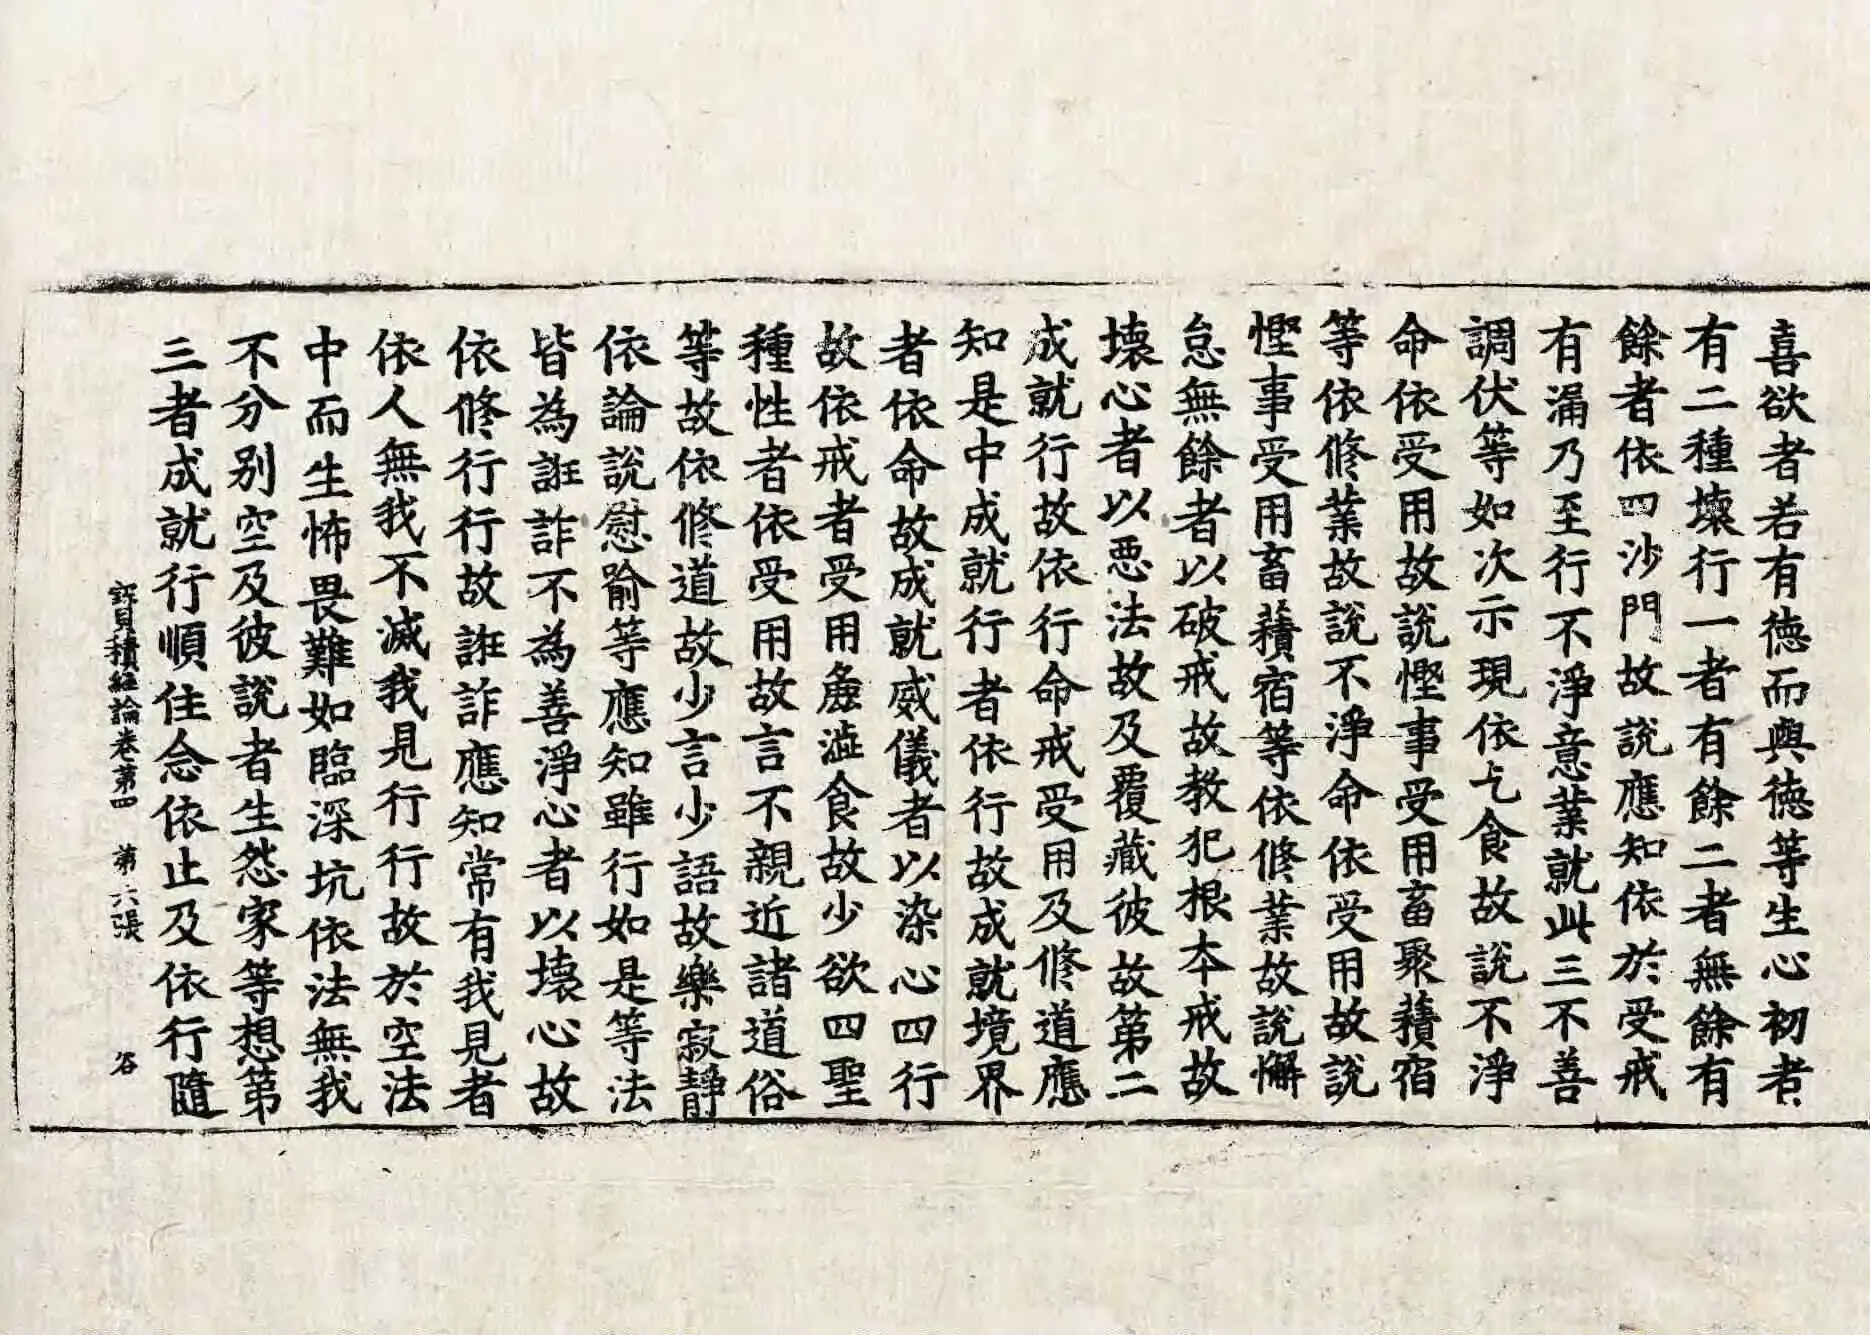 喜欲者若有徳而與徳等生心初者
有二種壞行一者有餘二者無餘有
餘者依四沙門故說應知依於受戒
有漏乃至行不淨意業就此三不善
調伏等如次示現依乞食故說不淨
命依受用故說慳事受用畜聚積宿
等依修業故說不淨命依受用故說
慳事受用畜積宿等依修業故說懈
怠無餘者以破戒故教犯根本戒故
壞心者以惡法故及覆藏彼故第二
成就行故依行命戒受用及修道應
知是中成就行者依行故成就境界
者依命故成就威儀者以染心四行
故依戒者受用麁澁食故少欲四聖
種性者依受用故言不親近諸道俗
等故依修道故少言少語故樂寂靜
依論說慰喻等應知雖行如是等法
皆為誑詐不為善淨心者以壞心故
依修行行故誑詐應知常有我見者
依人無我不滅我見行行故於空法
中而生怖畏難如臨深坑依法無我
不分别空及彼說者生怨家等想第
三者成就行順住念依止及依行隨
寶積經論卷第四 第六張